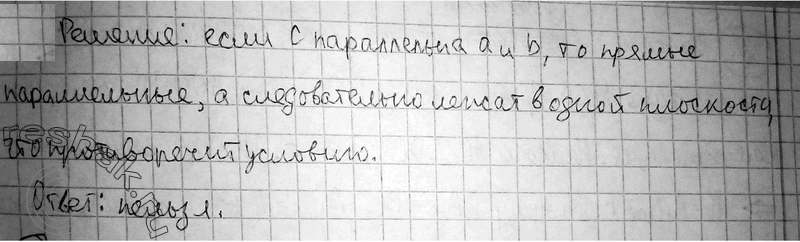 Решение: если c параллельна a и b, то прямые
параллельные, а следовательно лежат в одной плоскости,
что противоречит условию.
Ответ: нельзя.